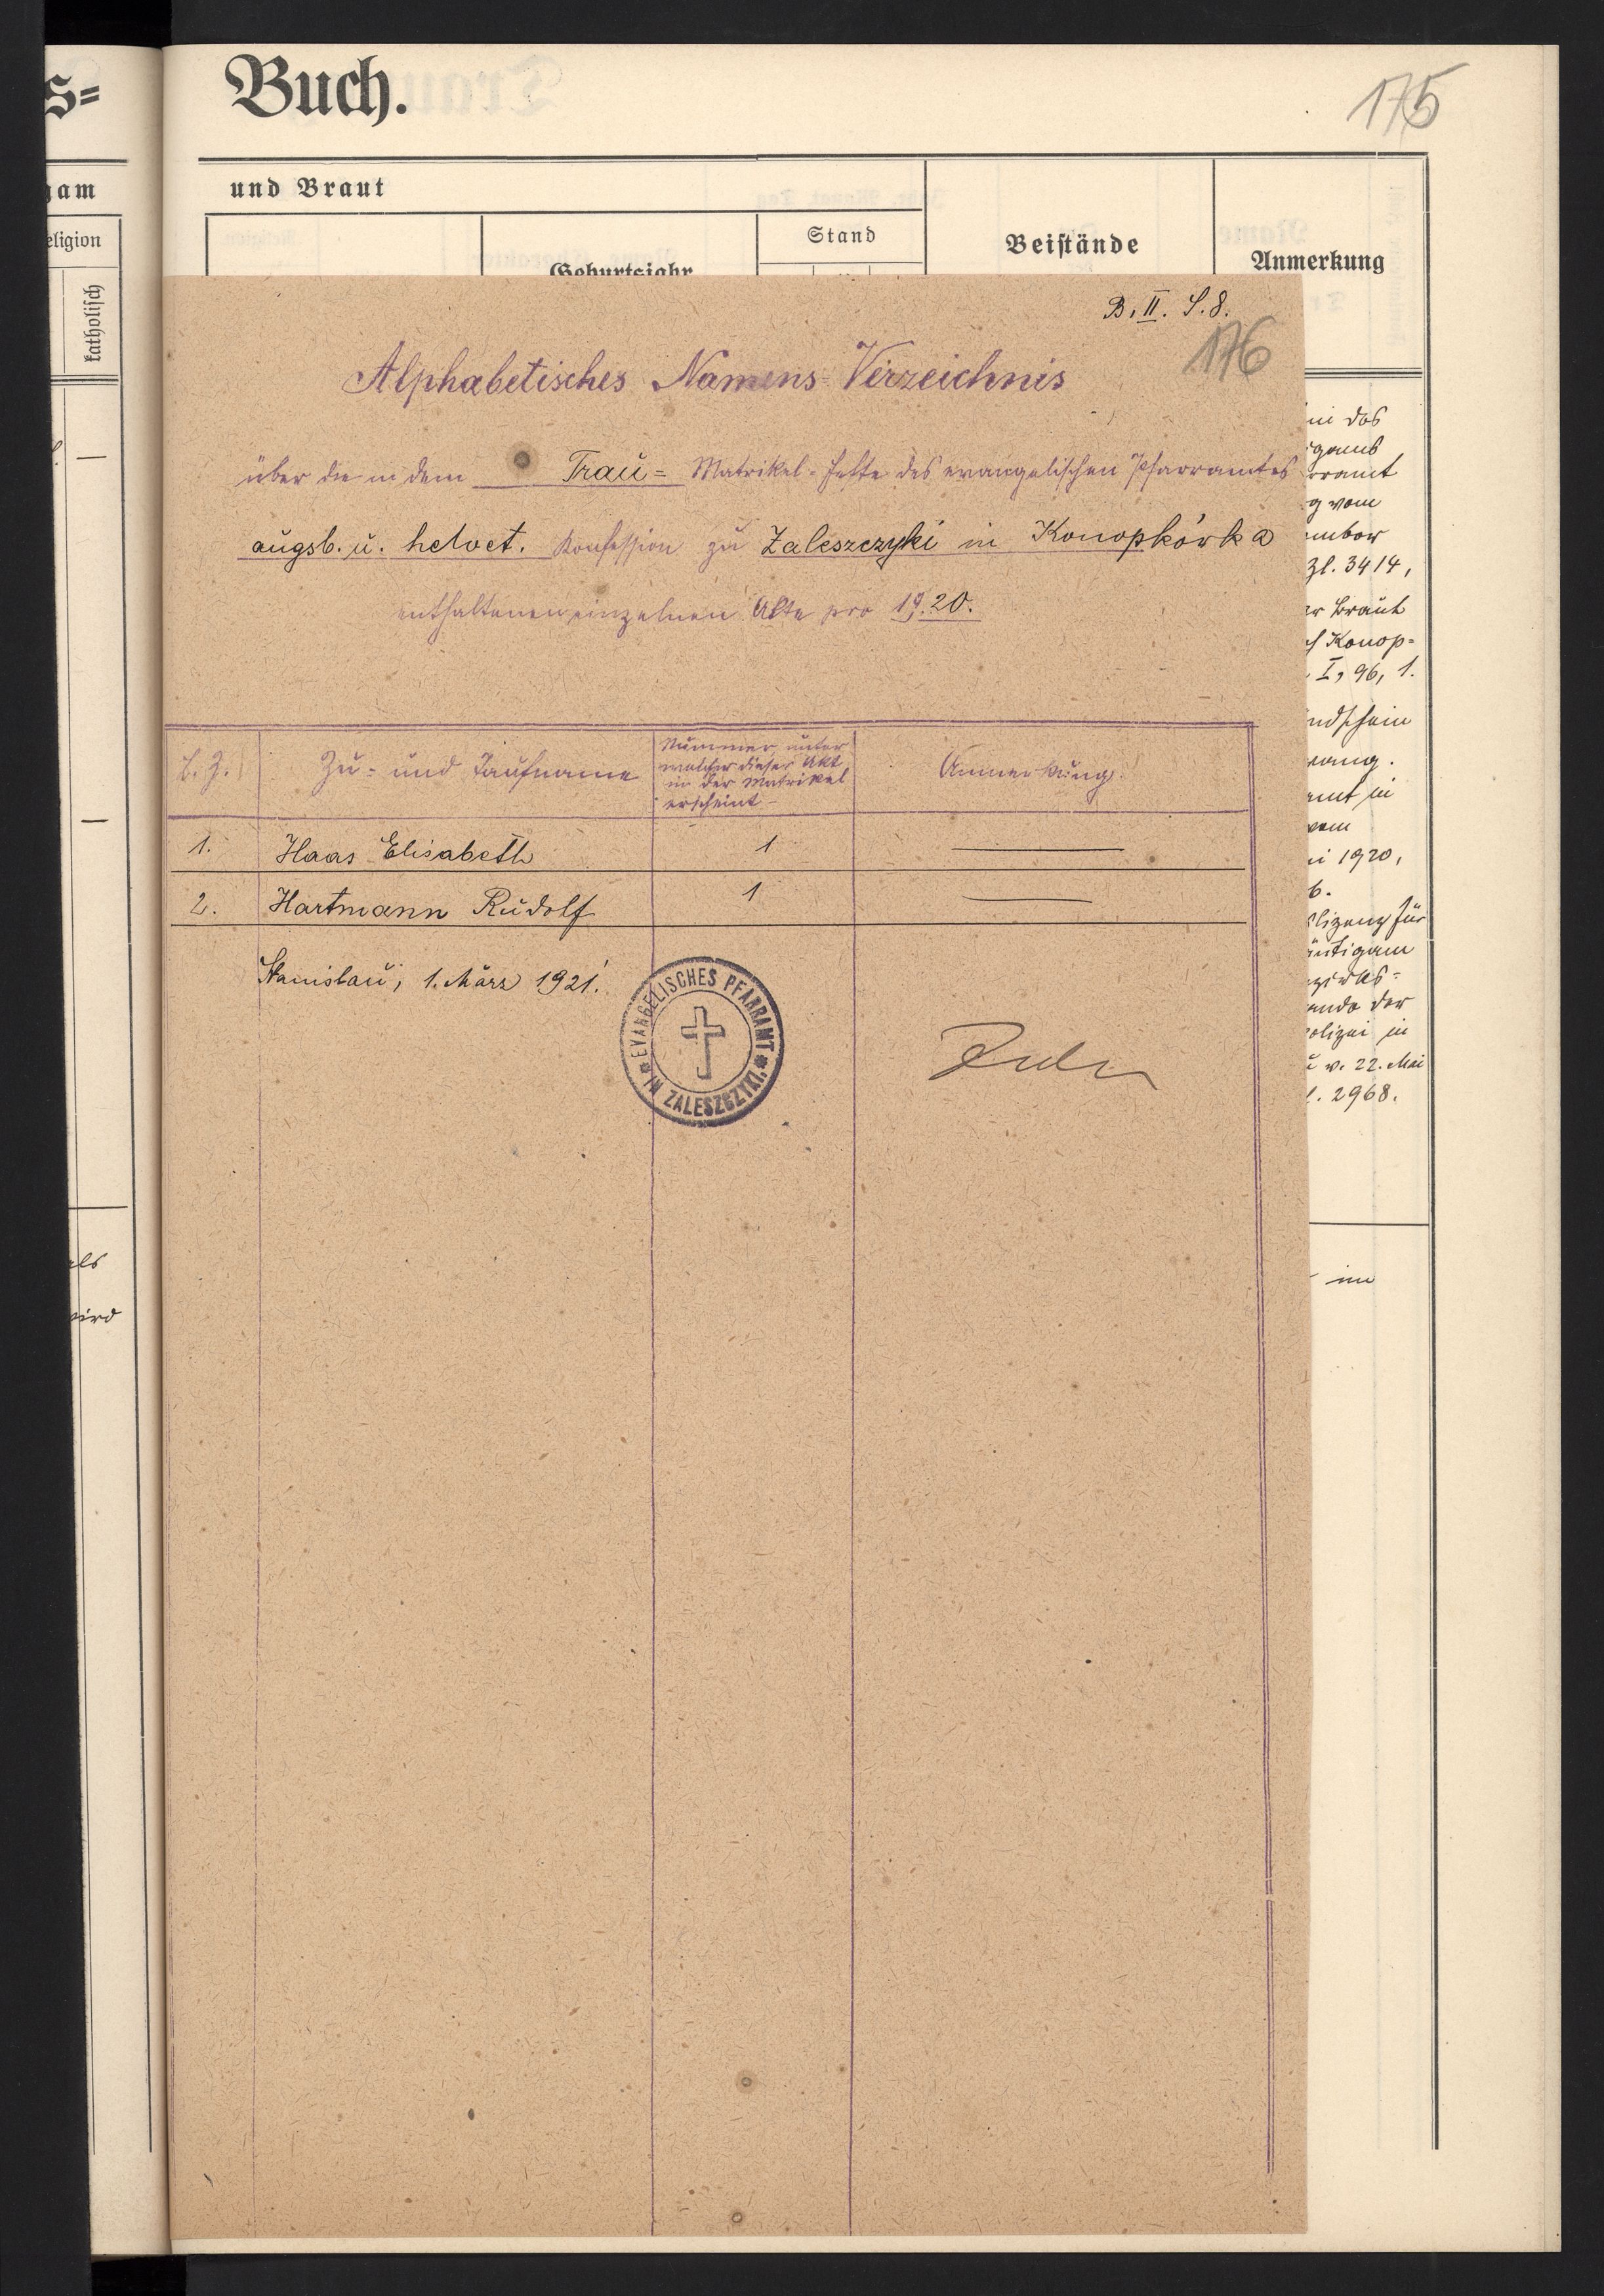 s=
Buch.
175
gam
und Braut
eligion
katholisch
Stand
Beistände
Anmerkung
Geburtsjahr
B. II. S. 8.
176
Alphabetisches Namens-Verzeichnis
über die in dem Trau= Matrikel-Hefte des evangelischen Pfarramtes
augsb. u. helvet. Konfession zu Zaleszczyki in Konopkówka
enthaltenen einzelnen Akte pro 1920.
L. Z. Zu= und Taufname Nummer, unter welcher dieser Akt in der Matrikel erscheint Anmerkung
1. Haas Elisabeth 1 —
2. Hartmann Rudolf 1 —
Stanislau, 1. März 1921.
EVANGELISCHES PFARRAMT
IN ZALESZCZYKI.
in das
igams
rramt
g vom
ambor
Zl. 3414,
er Braut
Konop=
I, 96, 1.
ndschein
vang.
amt in
vom
i 1920,
6.
lizenz für
äutigam
zirks=
ando der
olizei in
v. 22. Mai
2968.
als
wird
im